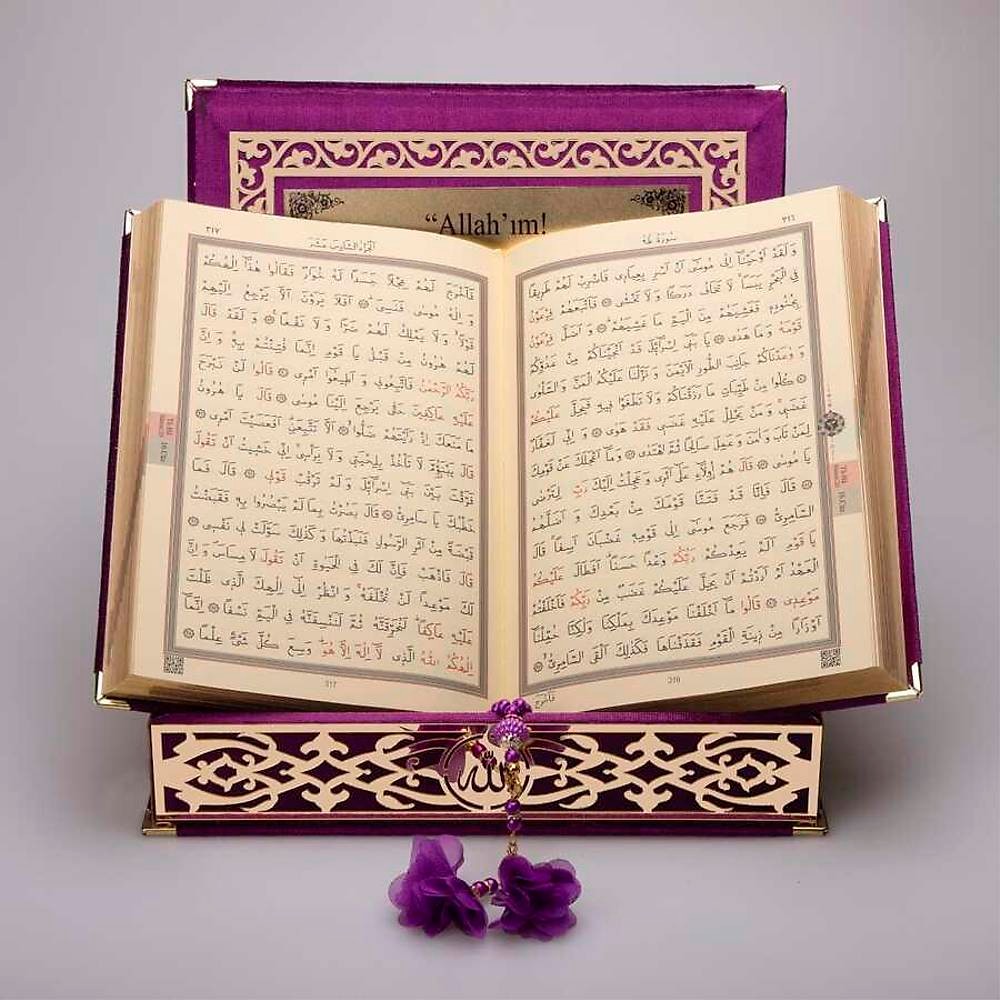 “Allah’ım!
٣١٦
سُورَةُ طٰهٰ
وَلَقَدْ اَوْحَيْنَٓا اِلٰى مُوسٰٓى اَنْ اَسْرِ بِعِبَاد۪ي فَاضْرِبْ لَهُمْ طَر۪يقًا
فِي الْبَحْرِ يَبَسًاۙ لَا تَخَافُ دَرَكًا وَلَا تَخْشٰى ۞ فَاَتْبَعَهُمْ فِرْعَوْنُ
بِجُنُودِه۪ فَغَشِيَهُمْ مِنَ الْيَمِّ مَا غَشِيَهُمْۜ ۞ وَاَضَلَّ فِرْعَوْنُ
قَوْمَهُ وَمَا هَدٰى ۞ يَا بَن۪ٓي اِسْرَٓائ۪لَ قَدْ اَنْجَيْنَاكُمْ مِنْ عَدُوِّكُمْ
وَوٰعَدْنَاكُمْ جَانِبَ الطُّورِ الْاَيْمَنَ وَنَزَّلْنَا عَلَيْكُمُ الْمَنَّ وَالسَّلْوٰى
۞ كُلُوا مِنْ طَيِّبَاتِ مَا رَزَقْنَاكُمْ وَلَا تَطْغَوْا ف۪يهِ فَيَحِلَّ عَلَيْكُمْ
غَضَب۪يۚ وَمَنْ يَحْلِلْ عَلَيْهِ غَضَب۪ي فَقَدْ هَوٰى ۞ وَاِنّ۪ي لَغَفَّارٌ
لِمَنْ تَابَ وَاٰمَنَ وَعَمِلَ صَالِحًا ثُمَّ اهْتَدٰى ۞ وَمَٓا اَعْجَلَكَ عَنْ قَوْمِكَ
يَا مُوسٰى ۞ قَالَ هُمْ اُو۬لَٓاءِ عَلٰٓى اَثَر۪ي وَعَجِلْتُ اِلَيْكَ رَبِّ لِتَرْضٰى
۞ قَالَ فَاِنَّا قَدْ فَتَنَّا قَوْمَكَ مِنْ بَعْدِكَ وَاَضَلَّهُمُ
السَّامِرِيُّ ۞ فَرَجَعَ مُوسٰٓى اِلٰى قَوْمِه۪ غَضْبَانَ اَسِفًاۚ قَالَ
يَا قَوْمِ اَلَمْ يَعِدْكُمْ رَبُّكُمْ وَعْدًا حَسَنًاۜ اَفَطَالَ عَلَيْكُمُ
الْعَهْدُ اَمْ اَرَدْتُمْ اَنْ يَحِلَّ عَلَيْكُمْ غَضَبٌ مِنْ رَبِّكُمْ فَاَخْلَفْتُمْ
مَوْعِد۪ي ۞ قَالُوا مَٓا اَخْلَفْنَا مَوْعِدَكَ بِمَلْكِنَا وَلٰكِنَّا حُمِّلْنَٓا
اَوْزَارًا مِنْ ز۪ينَةِ الْقَوْمِ فَقَذَفْنَاهَا فَكَذٰلِكَ اَلْقَى السَّامِرِيُّۙ ۞
فَاَخْرَجَ
316
٣١٧
اَلْجُزْءُ السَّادِسَ عَشَرَ
فَاَخْرَجَ لَهُمْ عِجْلًا جَسَدًا لَهُ خُوَارٌ فَقَالُوا هٰذَٓا اِلٰهُكُمْ
وَاِلٰهُ مُوسٰى فَنَسِيَۜ ۞ اَفَلَا يَرَوْنَ اَلَّا يَرْجِعُ اِلَيْهِمْ
قَوْلًاۙ وَلَا يَمْلِكُ لَهُمْ ضَرًّا وَلَا نَفْعًا۟ ۞ وَلَقَدْ قَالَ
لَهُمْ هٰرُونُ مِنْ قَبْلُ يَا قَوْمِ اِنَّمَا فُتِنْتُمْ بِه۪ۚ وَاِنَّ
رَبَّكُمُ الرَّحْمٰنُ فَاتَّبِعُون۪ي وَاَط۪يعُٓوا اَمْر۪ي ۞ قَالُوا لَنْ نَبْرَحَ
عَلَيْهِ عَاكِف۪ينَ حَتّٰى يَرْجِعَ اِلَيْنَا مُوسٰى ۞ قَالَ يَا هٰرُونُ
مَا مَنَعَكَ اِذْ رَاَيْتَهُمْ ضَلُّٓواۙ ۞ اَلَّا تَتَّبِعَنِۜ اَفَعَصَيْتَ اَمْر۪ي ۞
قَالَ يَبْنَؤُ۬مَّ لَا تَأْخُذْ بِلِحْيَت۪ي وَلَا بِرَأْس۪يۚ اِنّ۪ي خَش۪يتُ اَنْ تَقُولَ
فَرَّقْتَ بَيْنَ بَن۪ٓي اِسْرَٓائ۪لَ وَلَمْ تَرْقُبْ قَوْل۪ي ۞ قَالَ فَمَا
خَطْبُكَ يَا سَامِرِيُّ ۞ قَالَ بَصُرْتُ بِمَا لَمْ يَبْصُرُوا بِه۪ فَقَبَضْتُ
قَبْضَةً مِنْ اَثَرِ الرَّسُولِ فَنَبَذْتُهَا وَكَذٰلِكَ سَوَّلَتْ ل۪ي نَفْس۪ي ۞
قَالَ فَاذْهَبْ فَاِنَّ لَكَ فِي الْحَيٰوةِ اَنْ تَقُولَ لَا مِسَاسَۖ وَاِنَّ
لَكَ مَوْعِدًا لَنْ تُخْلَفَهُۚ وَانْظُرْ اِلٰٓى اِلٰهِكَ الَّذ۪ي ظَلْتَ
عَلَيْهِ عَاكِفًاۜ لَنُحَرِّقَنَّهُ ثُمَّ لَنَنْسِفَنَّهُ فِي الْيَمِّ نَسْفًا ۞ اِنَّمَٓا
اِلٰهُكُمُ اللّٰهُ الَّذ۪ي لَٓا اِلٰهَ اِلَّا هُوَۜ وَسِعَ كُلَّ شَيْءٍ عِلْمًا ۞
317
الله